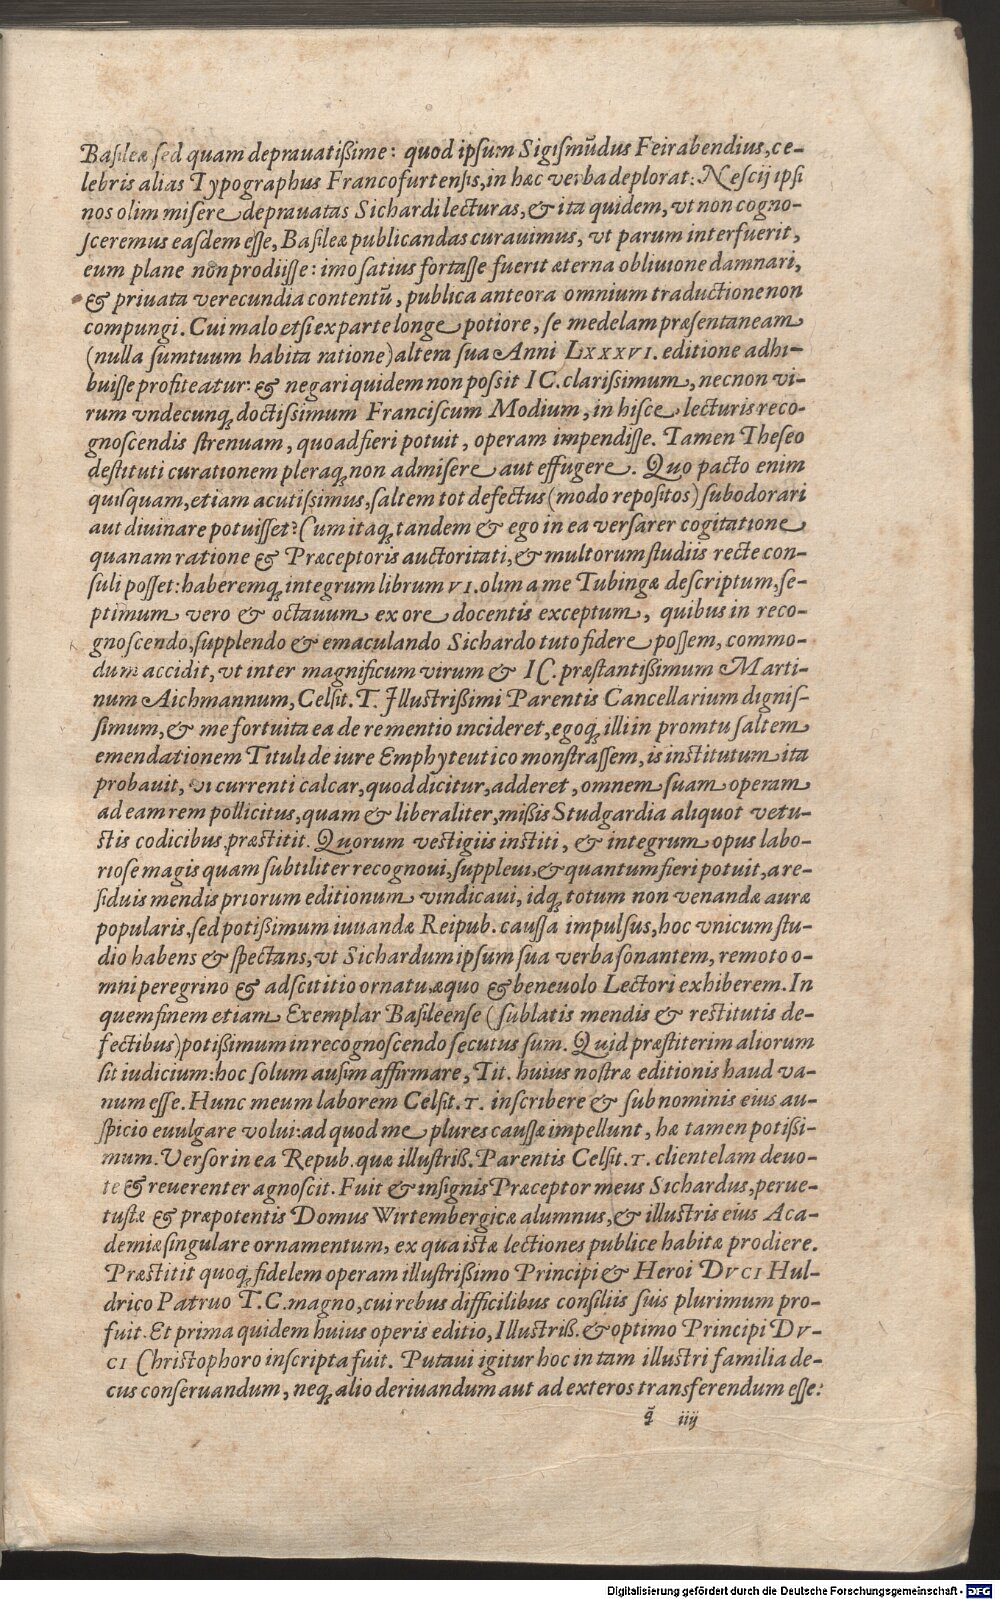 Basileæ sed quam deprauatißime: quod ipsum Sigismũdus Feirabendius, ce-
lebris alias Typographus Francofurtensis, in hæc verba deplorat: Nescij ipsi
nos olim misere deprauatas Sichardi lecturas, & ita quidem, vt non cogno-
sceremus easdem esse, Basileæ publicandas curauimus, vt parum interfuerit,
eum plane non prodiisse: imo satius fortasse fuerit æterna obliuione damnari,
& priuata verecundia contentũ, publica ante ora omnium traductione non
compungi. Cui malo etsi ex parte longe potiore, se medelam præsentaneam
(nulla sumtuum habita ratione) altera sua Anni LXXXVI. editione adhi-
buisse profiteatur: & negari quidem non possit IC. clarissimum, necnon vi-
rum vndecunq; doctissimum Franciscum Modium, in hisce lecturis reco-
gnoscendis strenuam, quoad fieri potuit, operam impendisse. Tamen Theseo
destituti curationem pleraq; non admisere aut effugere. Quo pacto enim
quisquam, etiam acutissimus, saltem tot defectus (modo repositos) subodorari
aut diuinare potuisset? Cum itaq; tandem & ego in ea versarer cogitatione
quanam ratione & Præceptoris auctoritati, & multorum studiis recte con-
suli posset: haberemq; integrum librum VI. olim a me Tubingæ descriptum, se-
ptimum vero & octauum ex ore docentis exceptum, quibus in reco-
gnoscendo, supplendo & emaculando Sichardo tuto fidere possem, commo-
dum accidit, vt inter magnificum virum & IC. præstantißimum Marti-
num Aichmannum, Celsit. T. Illustrißimi Parentis Cancellarium dignis-
simum, & me fortuita ea de re mentio incideret, egoq; illi in promtu saltem
emendationem Tituli de iure Emphyteutico monstrassem, is institutum ita
probauit, vt currenti calcar, quod dicitur, adderet, omnem suam operam
ad eam rem pollicitus, quam & liberaliter, mißis Studgardia aliquot vetu-
stis codicibus, præstitit. Quorum vestigiis institi, & integrum opus labo-
riose magis quam subtiliter recognoui, suppleui, & quantum fieri potuit, a re-
siduis mendis priorum editionum vindicaui, idq; totum non venandæ auræ
popularis, sed potißimum iuuandæ Reipub. caussa impulsus, hoc vnicum stu-
dio habens & spectans, vt Sichardum ipsum sua verba sonantem, remoto o-
mni peregrino & adscititio ornatu, æquo & beneuolo Lectori exhiberem. In
quem finem etiam Exemplar Basileense (sublatis mendis & restitutis de-
fectibus) potißimum in recognoscendo secutus sum. Quid præstiterim aliorum
sit iudicium: hoc solum ausim affirmare, Tit. huius nostræ editionis haud va-
num esse. Hunc meum laborem Celsit. T. inscribere & sub nominis eius au-
spicio euulgare volui: ad quod me plures caussæ impellunt, hæ tamen potißi-
mum. Versor in ea Repub. quæ illustriß. Parentis Celsit. T. clientelam deuo-
te & reuerenter agnoscit. Fuit & insignis Præceptor meus Sichardus, perue-
tustæ & præpotentis Domus Wirtembergicæ alumnus, & illustris eius Aca-
demiæ singulare ornamentum, ex qua istæ lectiones publice habitæ prodiere.
Præstitit quoq; fidelem operam illustrißimo Principi & Heroi DVCI Hul-
drico Patruo T. C. magno, cui rebus difficilibus consiliis suis plurimum pro-
fuit. Et prima quidem huius operis editio, Illustriß. & optimo Principi DV-
CI Christophoro inscripta fuit. Putaui igitur hoc in tam illustri familia de-
cus conseruandum, neq; alio deriuandum aut ad exteros transferendum esse:
q̃ iiij
Digitalisierung gefördert durch die Deutsche Forschungsgemeinschaft - DFG